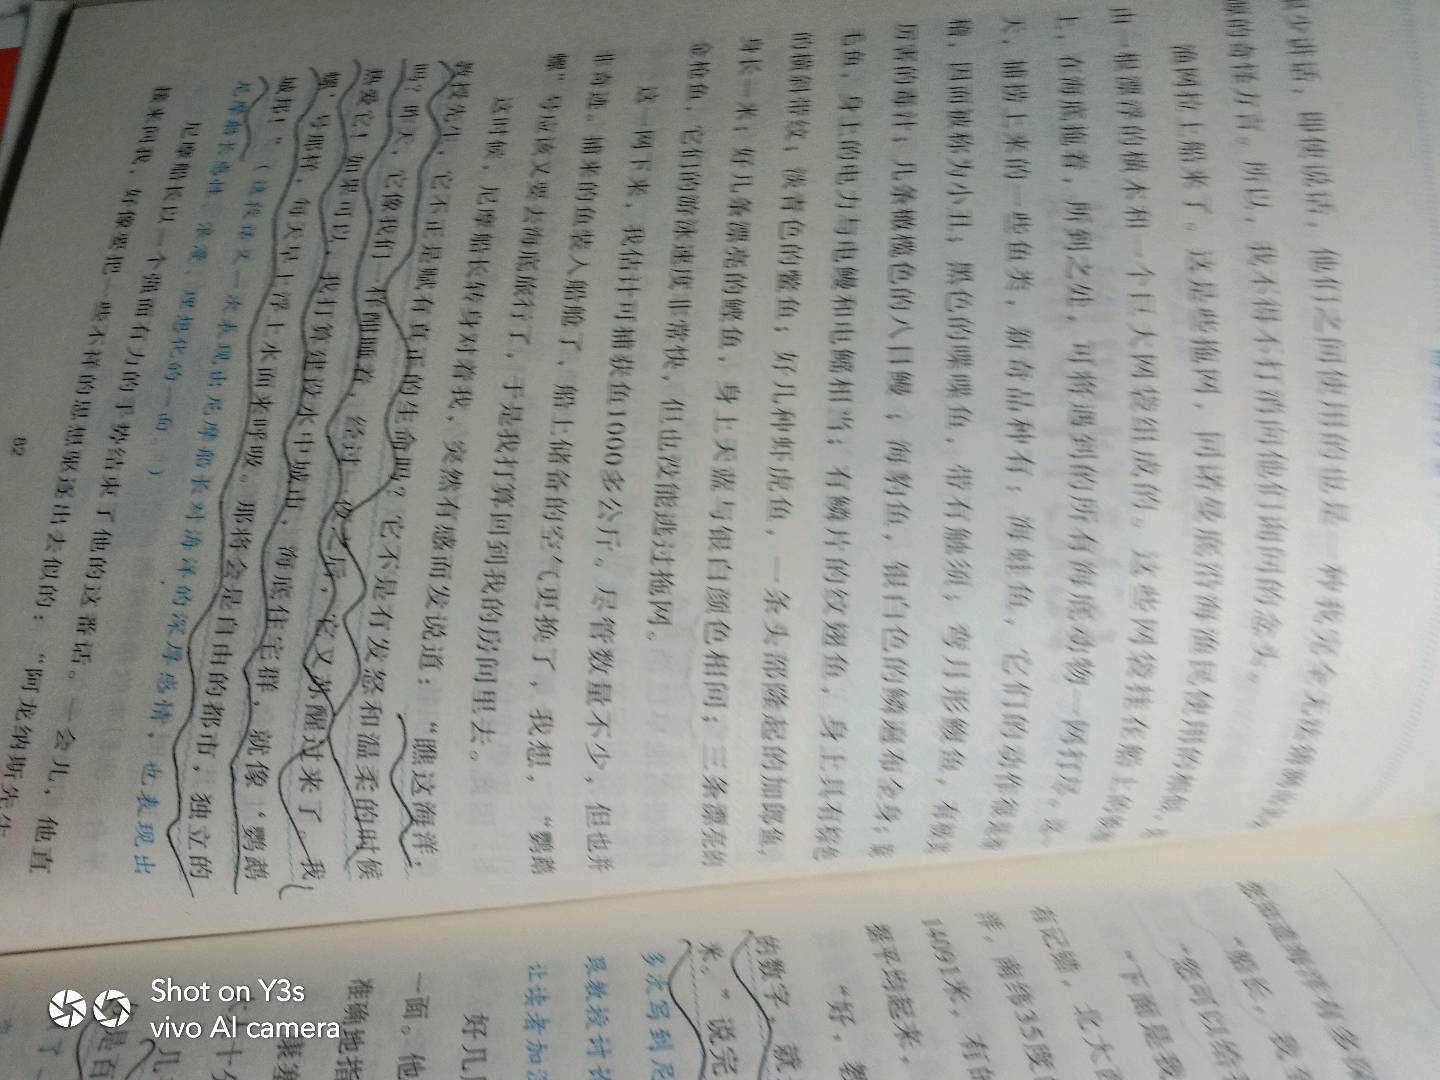 很少讲话，即使说话，他们之间使用的也是一种我完全无法
的奇怪方言。所以，我不得不打消向他们询问的念头。
渔网拉上船来了。这是些拖网，同诺曼底沿海渔民使用的相似，
由一根漂浮的横木和一个巨大网袋组成的。这些网袋挂在船上的
上，在海底拖着，所到之处，可将遇到的所有海底动物一网打尽。这
天，捕捞上来的一些鱼类，新奇品种有：海蛙鱼，它们的动作很
稽，因而被称为小丑；黑色的喋喋鱼，带有触须；弯月形鲀鱼，有
厉害的毒汁；几条橄榄色的八目鳗；海豹鱼，银白色的鳞遍布全身；
毛鱼，身上的电力与电鳗和电鳐相当；有鳞片的纹翅鱼，身上具有棕色
的横斜带纹；淡青色的鳖鱼；好几种虾虎鱼，一条头部隆起的加郎鱼，
身长一米；好几条漂亮的鲣鱼，身上天蓝与银白颜色相间；三条漂亮的
金枪鱼，它们的游泳速度非常快，但也没能逃过拖网。
这一网下来，我估计可捕获鱼1000多公斤。尽管数量不少，但也并
非奇迹。捕来的鱼装入船舱了，船上储备的空气更换了，我想，“鹦鹉
螺”号应该又要去海底旅行了，于是我打算回到我的房间里去。
这时候，尼摩船长转身对着我，突然有感而发说道：“瞧这海洋，
教授先生，它不正是赋有真正的生命吗？它不是有发怒和温柔的时候
吗？昨天，它像我们一样酣睡着，经过一夜之后，它又苏醒过来了。我
热爱它！如果可以，我打算建设水中城市，海底住宅群，就像‘鹦鹉
螺’号那样，每天早上浮上水面来呼吸。那将会是自由的都市，独立的
城邦！”（这段话又一次表现出尼摩船长对海洋的深厚感情，也表现出
尼摩船长感性、浪漫、理想化的一面。）
尼摩船长以一个强而有力的手势结束了他的这番话。一会儿，他直
接来问我，好像要把一些不祥的思想驱逐出去似的：“阿龙纳斯先生
82
您知道海洋有多深
“船长，我
“您可以给我
“下面是我
有记错，北大西
洋，南纬35度
14091米，有的
据平均起来，
“好，教
的数字，就
来。”说完
多次写到尼
跟教授讨论
让读者加深
好几
一面。他
准确地指
Shot on Y3s
vivo AI camera